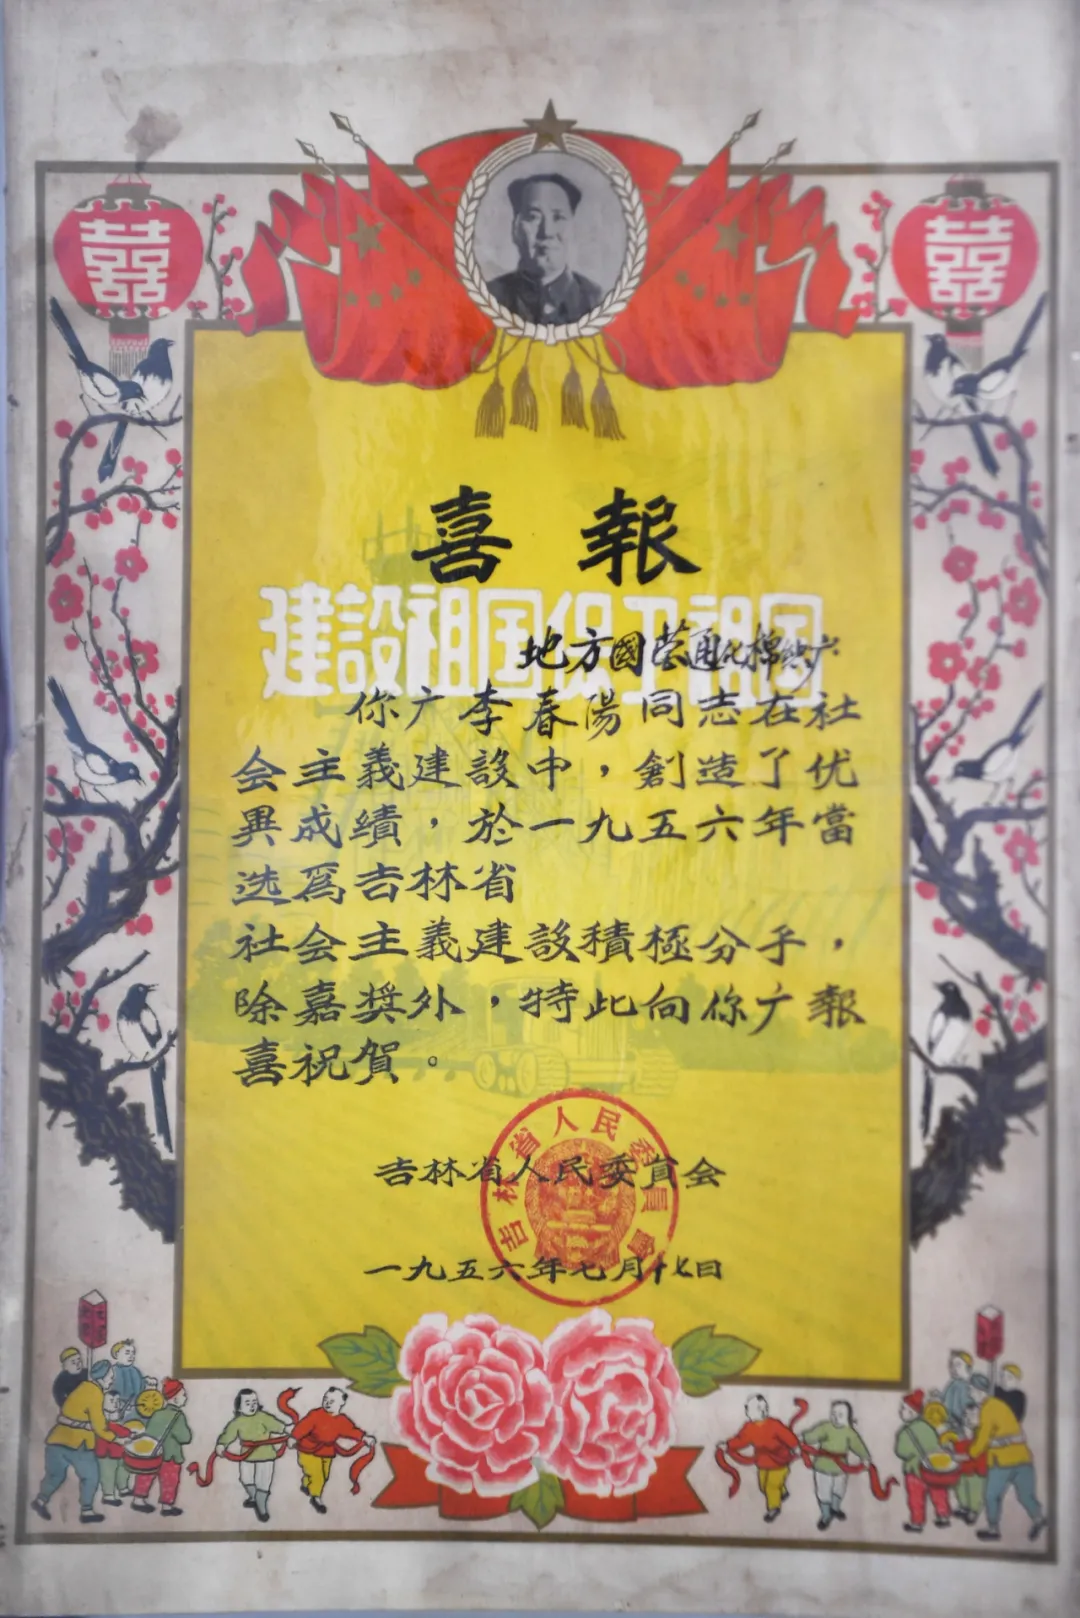 囍
囍
喜報
建設祖国保卫祖国
地方國营通化棉織广
你广李春陽同志在社
会主義建設中，創造了优
異成績，於一九五六年當
选爲吉林省
社会主義建設積極分子，
除嘉獎外，特此向你广報
喜祝賀。
吉林省人民委員会
吉林省人民委員會
一九五六年七月十七日